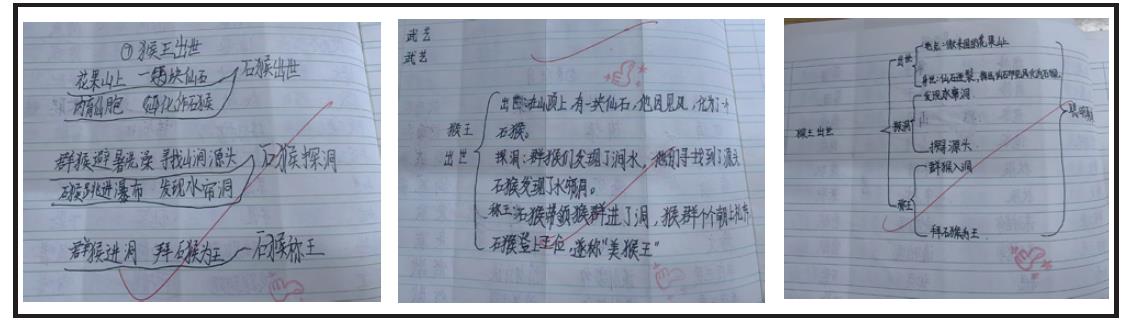 ①猴王出世
花果山上 一块仙石
石猴出世
内育仙胞 化作石猴
群猴避暑洗澡 寻找山涧源头
石猴探洞
石猴跳进瀑布 发现水帘洞
群猴进洞 拜石猴为王
石猴称王
武艺
武艺
出世:在山顶上,有一块仙石,他因见风,化为了一个
猴王
石猴。
出世
探洞:群猴们发现了涧水,他们寻找到了源头
石猴发现了水帘洞。
称王:石猴带领猴群进了洞,猴群个个朝上礼拜
石猴登上王位,遂称"美猴王"
地点:傲来国的花果山
出世
身世:仙石迸裂,
发现水帘洞
猴王出世
探洞
探源头
群猴入洞
称王
拜石猴为王